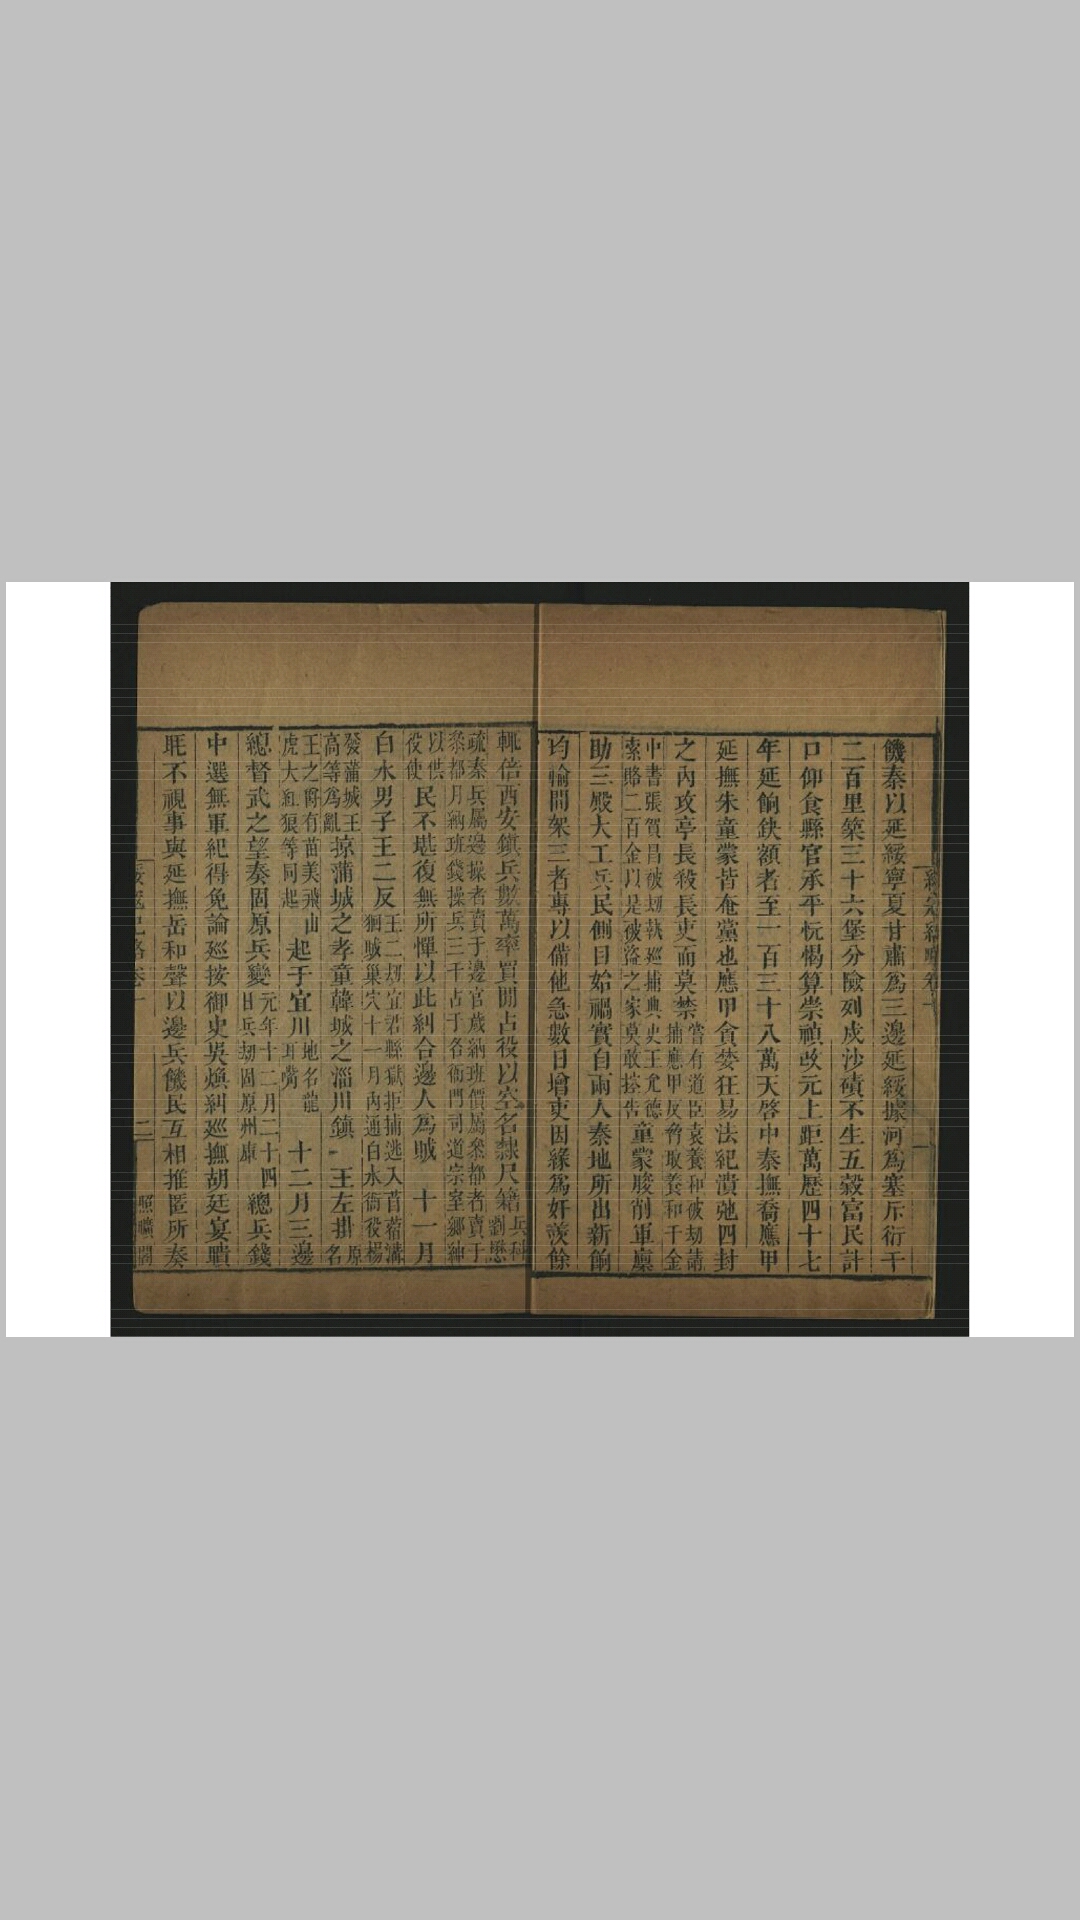 饑秦以延綏寧夏甘肅爲三邊延綏據河爲塞斥衍千
二百里築三十六堡分險列戍沙磧不生五穀富民計
口仰食縣官承平忨愒算崇禎改元上距萬歷四十七
年延餉鈌額者至一百三十八萬天啓中秦撫喬應甲
延撫朱童蒙皆奄黨也應甲貪婪狂易法紀潰弛四封
之內攻亭長殺長吏而莫禁
嘗有道臣袁養和破刼請
捕應甲反脅取養和千金
中書張賀昌破刼執巡捕典史王允德
索賂二百金以是被盜之家莫敢控告
童蒙朘削軍廩
助三殿大工兵民側目始禍實自兩人秦地所出新餉
均輸間架三者專以備他急數日增吏因緣爲奸羨餘
輒倍西安鎮兵數萬率買閒占役以空名隸尺籍
兵科
劉懋
疏秦兵屬邊操者賣于邊官歲納班價屬叅都者賣于
叅都月納班錢操兵三千占于各衙門司道宗室鄉紳
以供
役使
民不堪復無所憚以此糾合邊人爲賊 十一月
白水男子王二反
王二刼宜君縣獄拒捕逃入苜蓿溝
猢賊巢穴十一月內通白水衙役楊
發蒲城王
高等爲亂
掠蒲城之孝童韓城之淄川鎮 王左掛
原
名
王之爵有苗美飛山
虎大紅狼等同起
起于宜川
地名龍
耳嘴
十二月三邊
總督武之望奏固原兵變
元年十二月二十四
日兵刼固原州庫
總兵錢
中選無軍紀得免論巡按御史吳煥糾巡撫胡廷宴聵
眊不視事與延撫岳和聲以邊兵饑民互相推匿所奏
綏寇紀略卷一
二
照曠閣